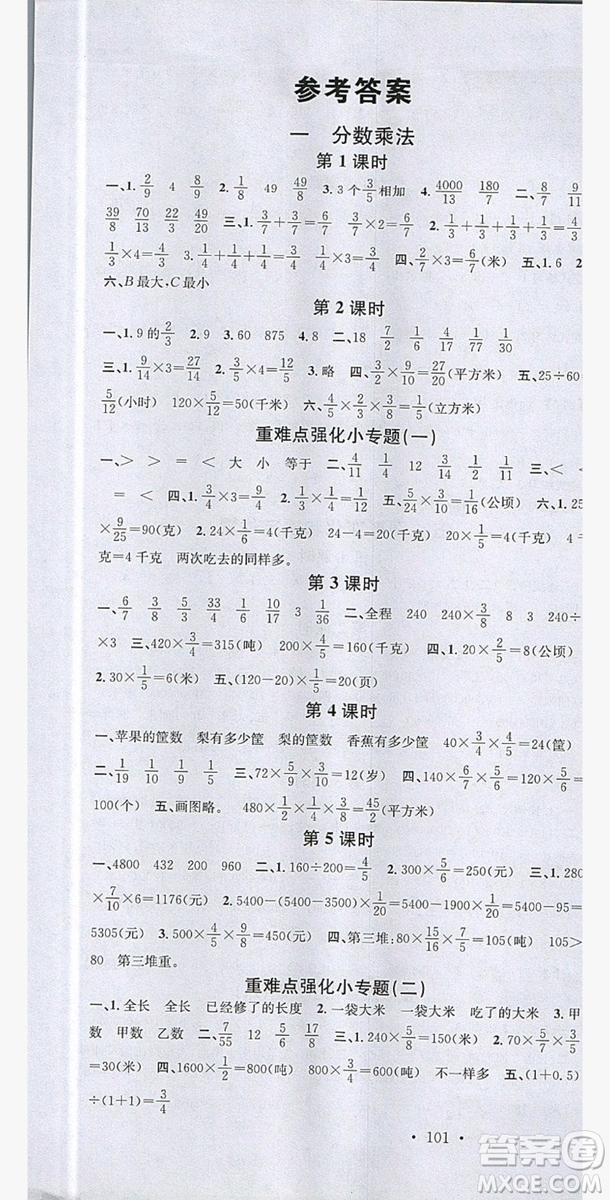 参考答案
一 分数乘法
第1课时
一、1. 2/9 4 8/9 2. 1/8 49 49/8 3. 3个3/5相加 4. 4000/13 180/7 二、8/7 9/11
39/8 70/13 49/8 三、1. 3/7+3/7=6/7 3/7×2=6/7 2. 1/3+1/3+1/3+1/3=4/3
1/3×4=4/3 3. 1/3×4=4/3 四、2/7×3=6/7(米) 五、1.6 2.
六、B最大,C最小
第2课时
一、1.9的2/3 2.9 3.60 875 4.8 二、18 7/2 1/2
三、1. 9/14×3=27/14 2. 3/5×4=12/5 3.略 四、9/10×3/2=27/20(平方米) 五、25÷60=
5/12(小时) 120×5/12=50(千米) 六、3/5×2/3=2/5(立方米)
重难点强化小专题(一)
一、> > = < 大 小 等于 二、4/11 4/3 12 3/14 1/4 三、< <
= < 四、1. 4/9×3=4/3 2. 3/10×1/4=3/40 五、24/5×5/24×3/10=3/10(公顷) 六、1.
×9/25=90(克) 2. 24×1/6=4(千克) 24-4=20(千克) 20×1/5=4(千克)
克=4千克 两次吃去的同样多。
第3课时
一、6/7 3/8 3/5 5/33 1/6 10/17 3 1/36 二、全程 240 240×3/8 8 3 240÷8
×3 三、420×3/4=315(吨) 200×4/5=160(千克) 四、1. 20×2/5=8(公顷)
2. 30×1/5=6(米) 五、(120-20)×1/5=20(页)
第4课时
一、苹果的筐数 梨有多少筐 梨的筐数 香蕉有多少筐 40×3/4×4/5=24(筐)
二、1/19 9/10 1/15 4/3 三、72×1/2×1/3=12(岁) 四、160×3/4×5/6=
100(个) 五、画图略。 480×1/2×1/4×3/4=45/2(平方米)
第5课时
一、4800 432 200 960 二、1. 160÷200=4/5 2. 300×5/6=250(元) 三、1. 280
×7/10×6=1176(元) 2. 5400-(5400-3500)×5/100=5400-1900×5/100=
5305(元) 四、200×2/5=80(吨) 第三堆:80×21/16=105(吨) 105>
80 第三堆重。
重难点强化小专题(二)
一、1.全长 全长 已经修了的长度 2.一袋大米 一袋大米 吃了的大米 3.甲
数 甲数 乙数 二、7/55 12 5/33 5/12 三、1. 1/5 10 2. 70×5/7×3/5
=30(米) 四、1600×1/2=800(吨) 800×3/4=600(吨) 五、(1+0.5)
÷(1+1)=3/4
· 101 ·
答案圈
MXQE.COM